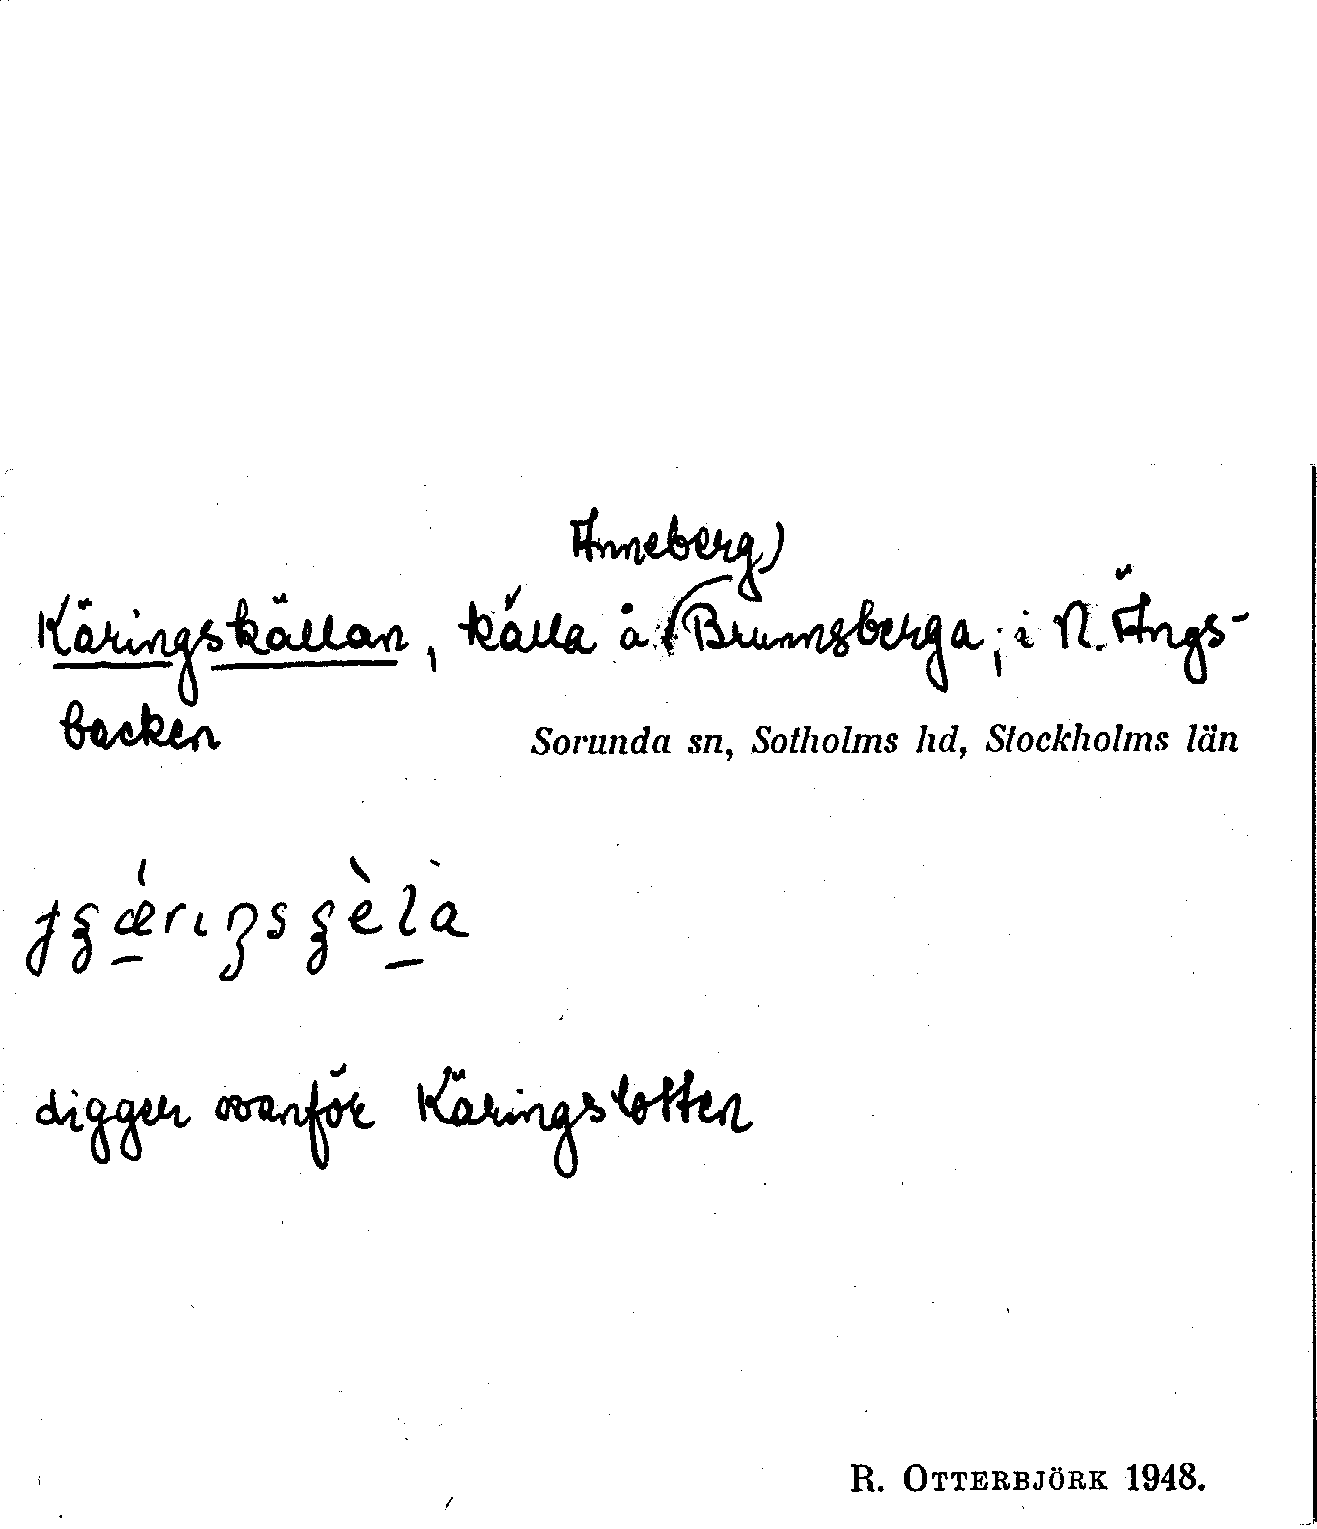 Anneberg)
Käringskällan, källa å (Brunnsberga, i N. Ängs-
backen
Sorunda sn, Sotholms hd, Stockholms län
digger ovanför Käringslotten
R. OTTERBJÖRK 1948.